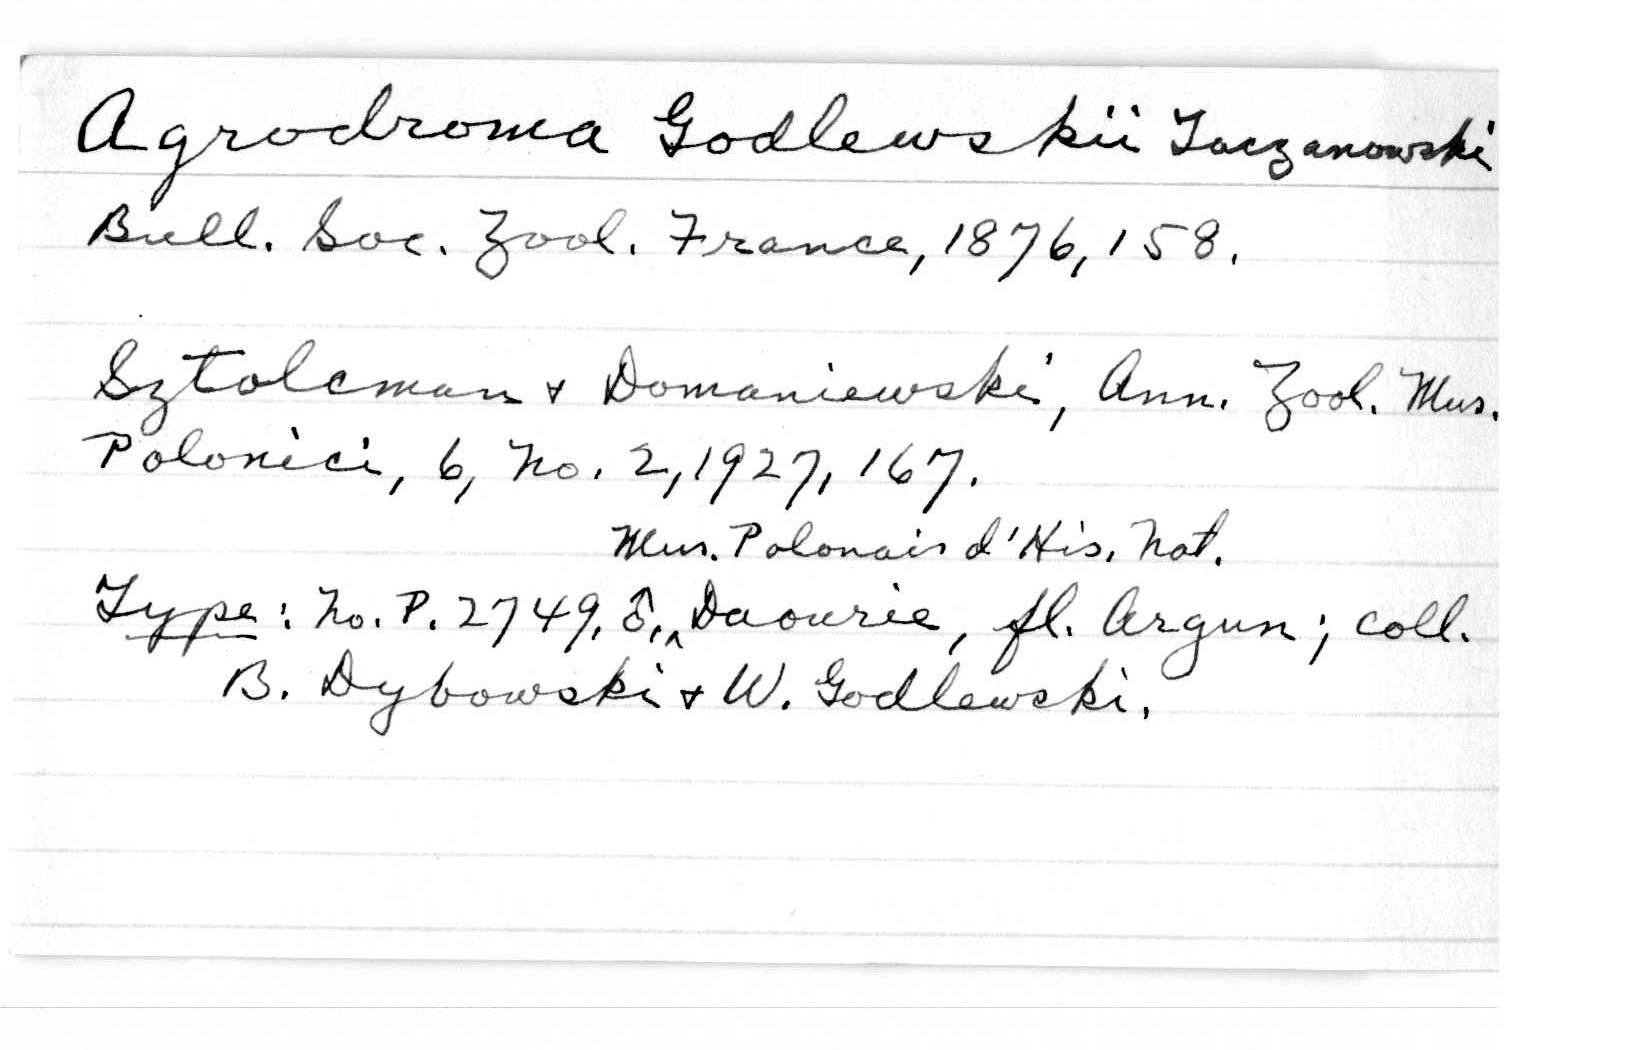 Agrodroma Godlewskii Taczanowski
Bull. Soc. Zool. France, 1876, 158.
Sztolcman & Domaniewski, Ann. Zool. Mus.
Polonici, 6, No. 2, 1927, 167.
Mus. Polonais d'His. Nat.
Type: No. P. 2749, ♂, ^ Daourie, fl. Argun; coll.
B. Dybowski & W. Godlewski.